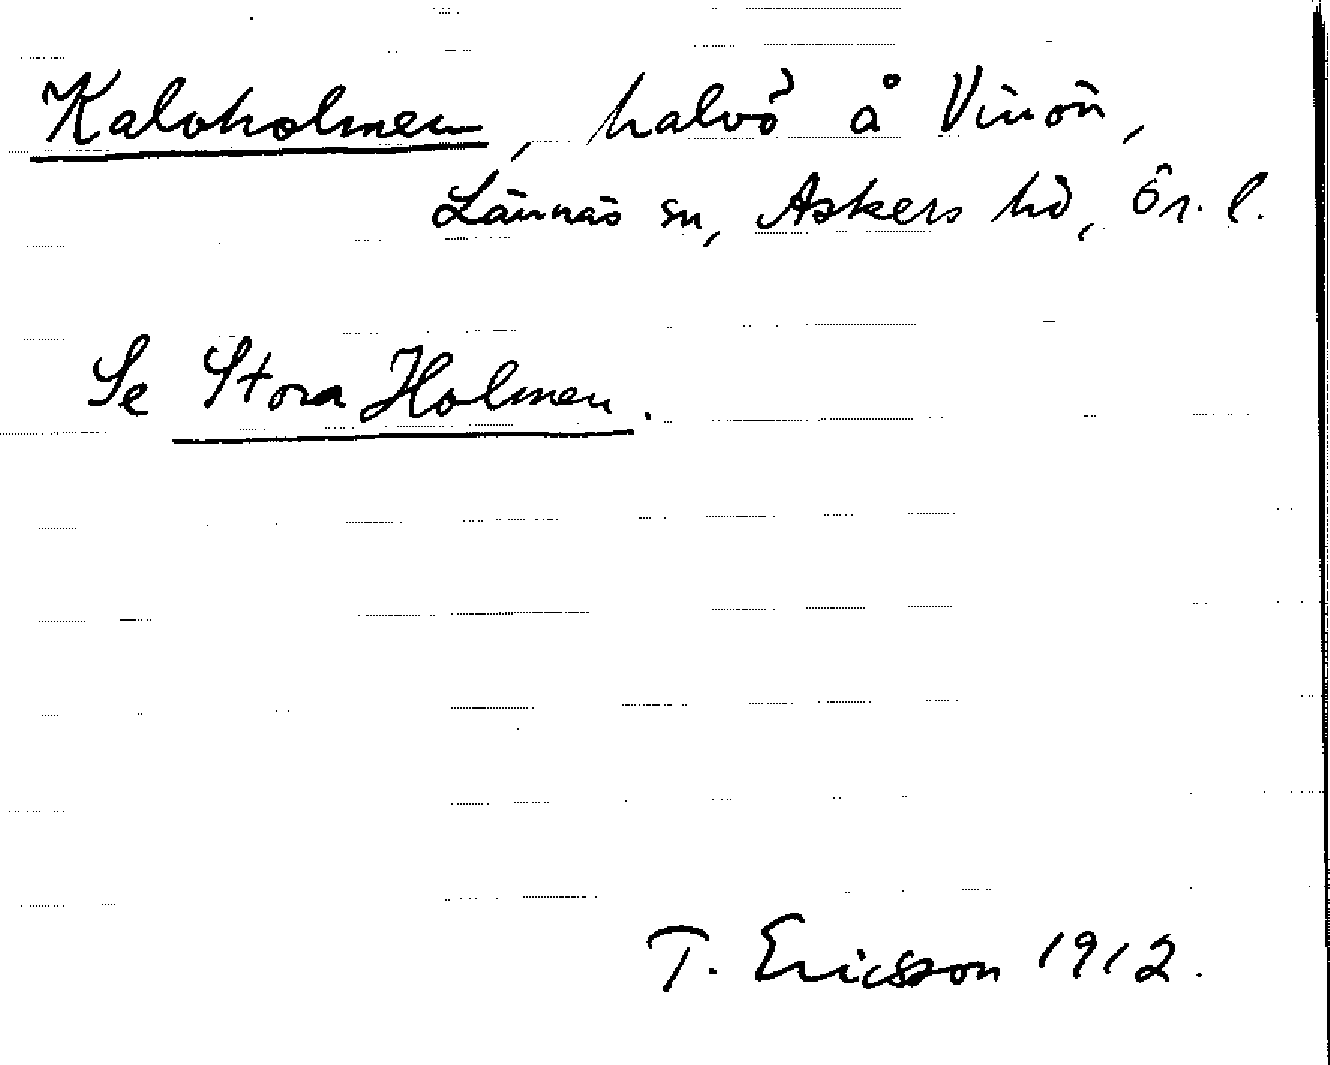 Kalvholmen, halvö å Vinön,
Lännäs sn, Askers hd, Ör. l.
Se Stora Holmen.
T. Ericsson 1912.